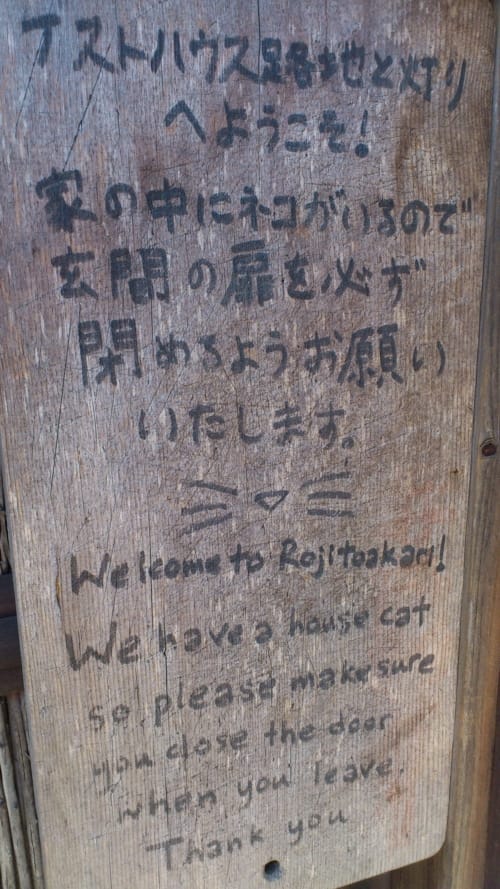 ゲストハウス路地と灯り
へようこそ!
家の中にネコがいるので
玄関の扉を必ず
閉めるようお願い
いたします。
Welcome to Rojitoakari!
We have a house cat
so, please make sure
you close the door
when you leave.
Thank you